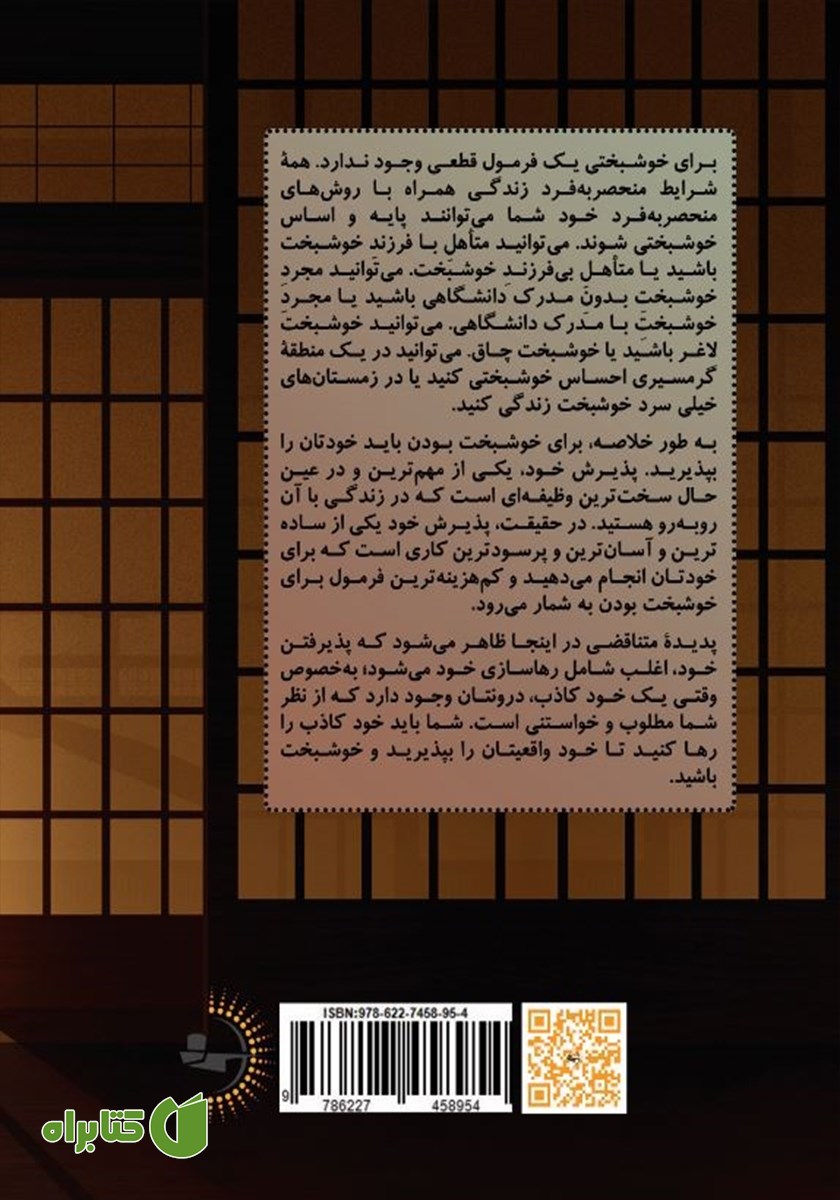 برای خوشبختی یک فرمول قطعی وجود ندارد. همهٔ
شرایط منحصربه‌فرد زندگی همراه با روش‌های
منحصربه‌فرد خود شما می‌توانند پایه و اساس
خوشبختی شوند. می‌توانید متأهلِ با فرزند خوشبخت
باشید یا متأهلِ بی‌فرزندِ خوشبخت. می‌توانید مجردِ
خوشبختِ بدون مدرک دانشگاهی باشید یا مجردِ
خوشبختِ با مدرک دانشگاهی. می‌توانید خوشبخت
لاغر باشید یا خوشبختِ چاق. می‌توانید در یک منطقهٔ
گرمسیری احساس خوشبختی کنید یا در زمستان‌های
خیلی سرد خوشبخت زندگی کنید.
به طور خلاصه، برای خوشبخت بودن باید خودتان را
بپذیرید. پذیرش خود، یکی از مهم‌ترین و در عین
حال سخت‌ترین وظیفه‌ای است که در زندگی با آن
روبه‌رو هستید. در حقیقت، پذیرش خود یکی از ساده
ترین و آسان‌ترین و پرسودترین کاری است که برای
خودتان انجام می‌دهید و کم‌هزینه‌ترین فرمول برای
خوشبخت بودن به شمار می‌رود.
پدیدهٔ متناقضی در اینجا ظاهر می‌شود که پذیرفتن
خود، اغلب شامل رهاسازی خود می‌شود؛ به‌خصوص
وقتی یک خود کاذب، درونتان وجود دارد که از نظر
شما مطلوب و خواستنی است. شما باید خود کاذب را
رها کنید تا خود واقعیتان را بپذیرید و خوشبخت
باشید.
ISBN:978-622-7458-95-4
9 786227 458954
کتابراه